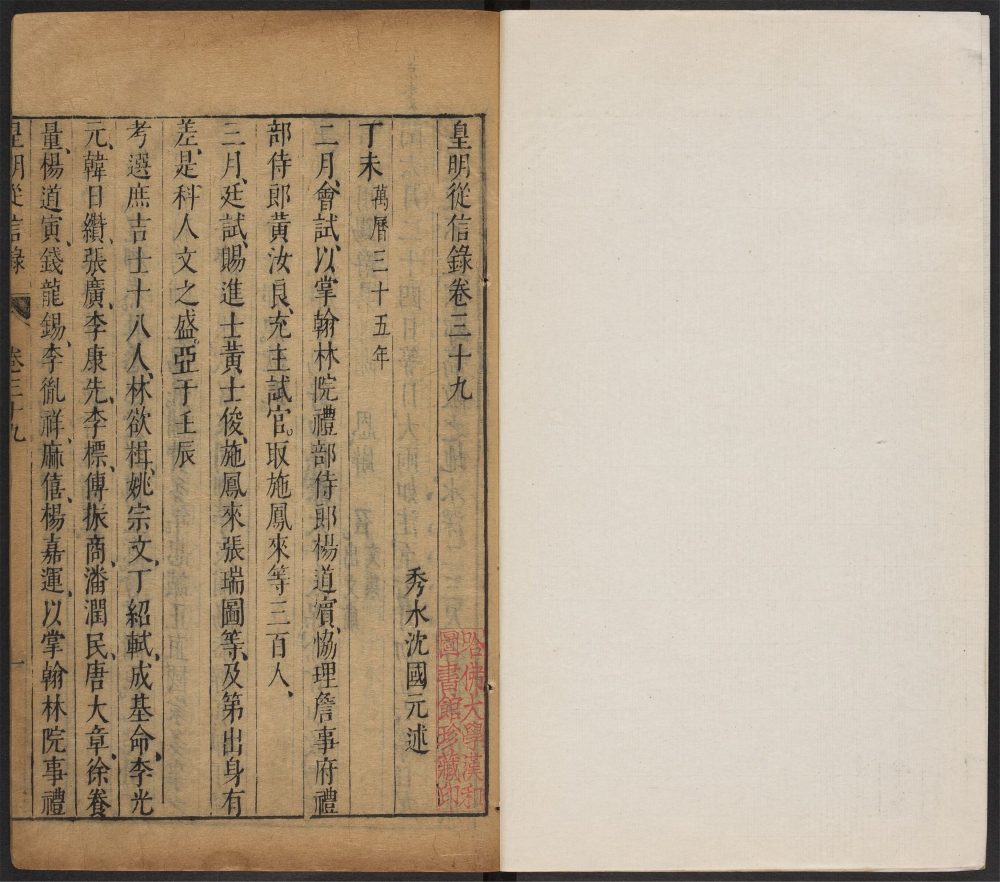 皇明從信錄卷三十九
秀水沈國元述
丁未萬曆三十五年
二月、會試、以掌翰林院禮部侍郎楊道賓、協理詹事府禮
部侍郎黃汝良、充主試官。取施鳳來等三百人、
三月、廷試、賜進士黃士俊、施鳳來張瑞圖等、及第出身有
差、是科人文之盛、亞于壬辰
考選庶吉士十八人、林欲楫、姚宗文、丁紹軾、成基命、李光
元、韓日纘、張廣、李康先、李標、傅振商、潘潤民、唐大章、徐養
量、楊道寅、錢龍錫、李胤祥、麻僖、楊嘉運、以掌翰林院事禮
皇明從信錄
卷三十九
一
哈佛大學漢和
圖書館珍藏印